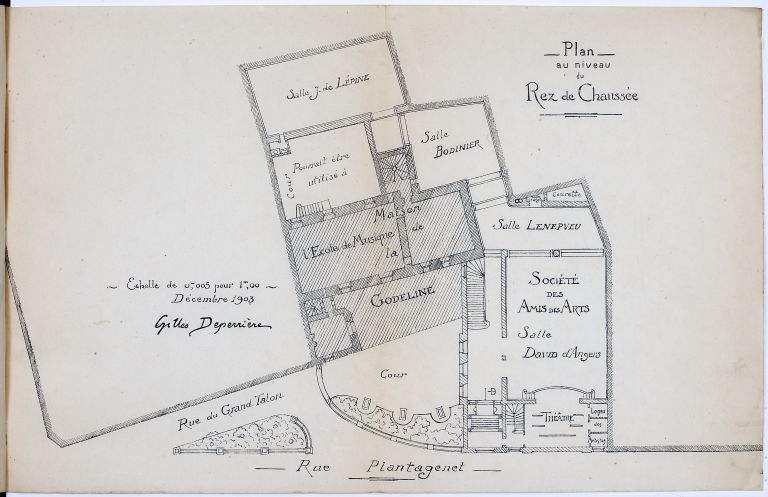 Plan
au niveau
du
Rez de Chaussée
Salle J. de LÉPINE
Salle
BODINIER
Pourrait être
utilisé à
Cour
l'Ecole de Musique
Maison
de
la
GODELINE
Courette
Salle LENEPVEU
SOCIÉTÉ
DES
AMIS DES ARTS
Salle
DAVID d'Angers
~ Echelle de 0,005 pour 1m,00 ~
Décembre 1903
Gilles Deperrière
Cour
Rue du Grand Talon
THÉÂTRE
Loges
des
Artistes
Rue Plantagenet